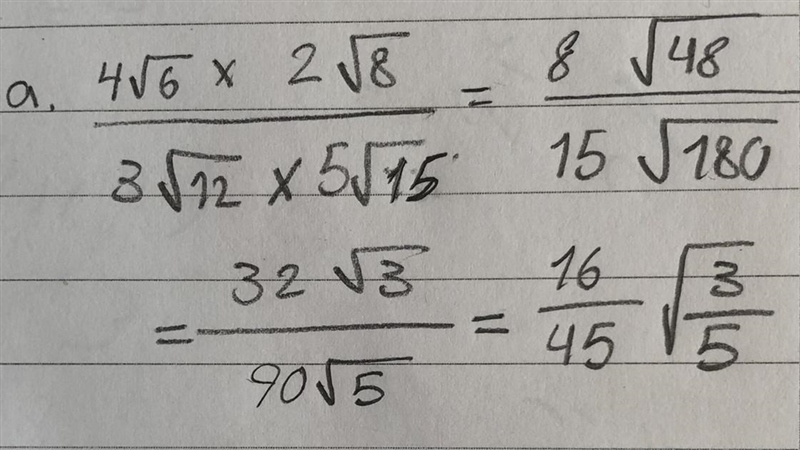 a. 4√6 x 2√8 / 3√12 x 5√15 = 8 √48 / 15 √180
= 32 √3 / 90√5 = 16/45 √3/5